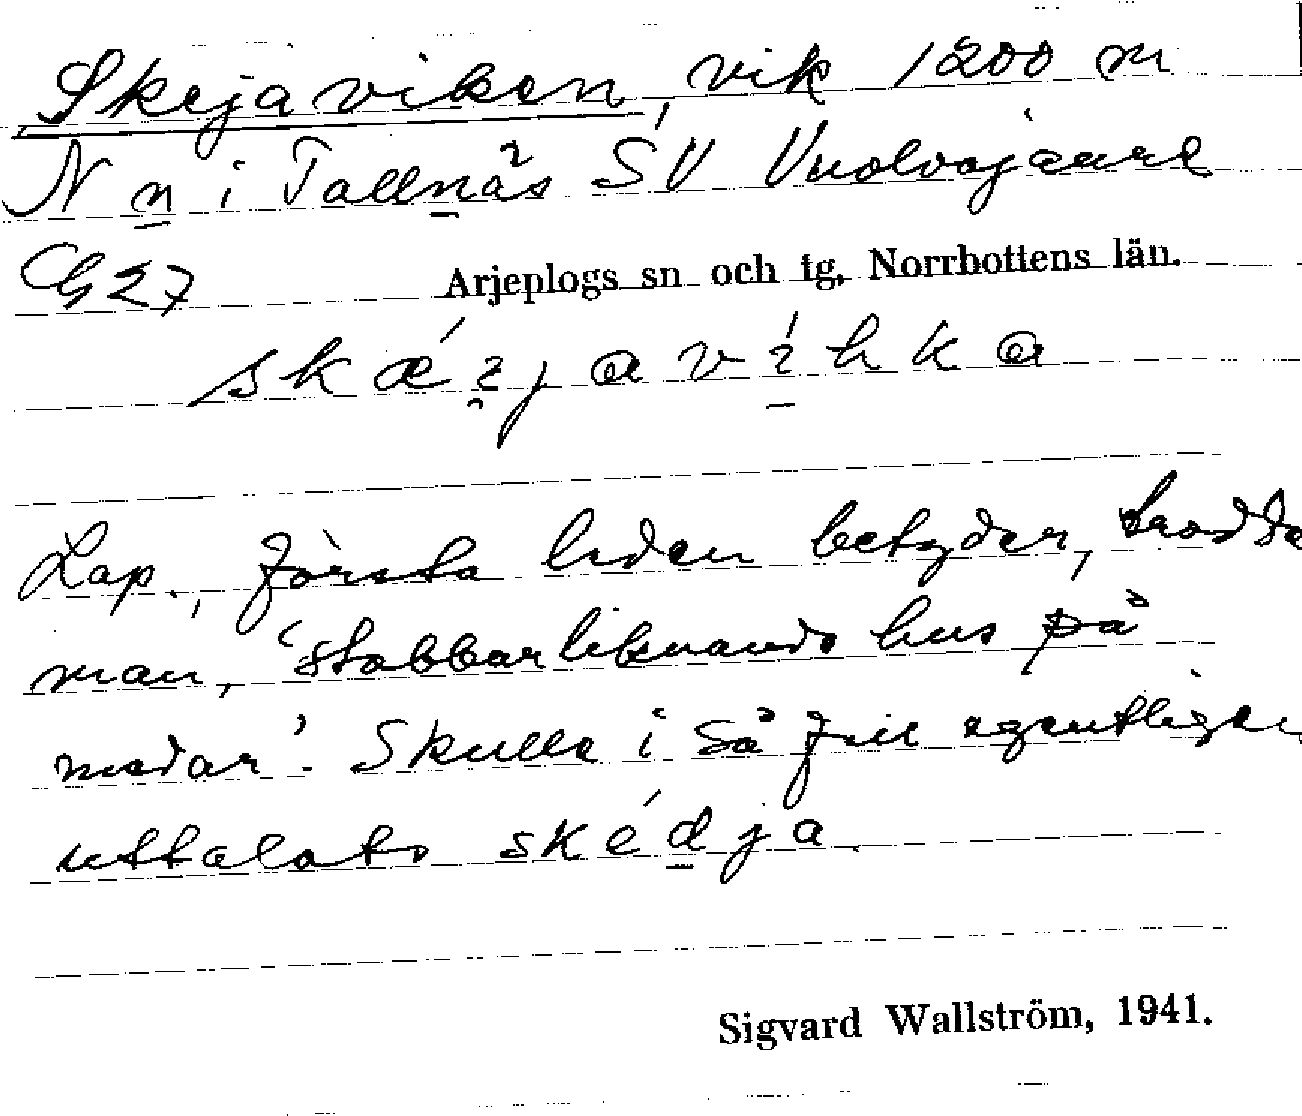 Skejaviken, vik 1200 m
N n i Tallnäs SV Vuolvojaure
G27
Arjeplogs sn och tg, Norrbottens län.
skǽi̯javaví̱hka
Lap., första leden betyder, trodde
man, 'stabbarliknande hus på
medar'. Skulle i så fall egentligen
uttalats skéd̲ja
Sigvard Wallström, 1941.